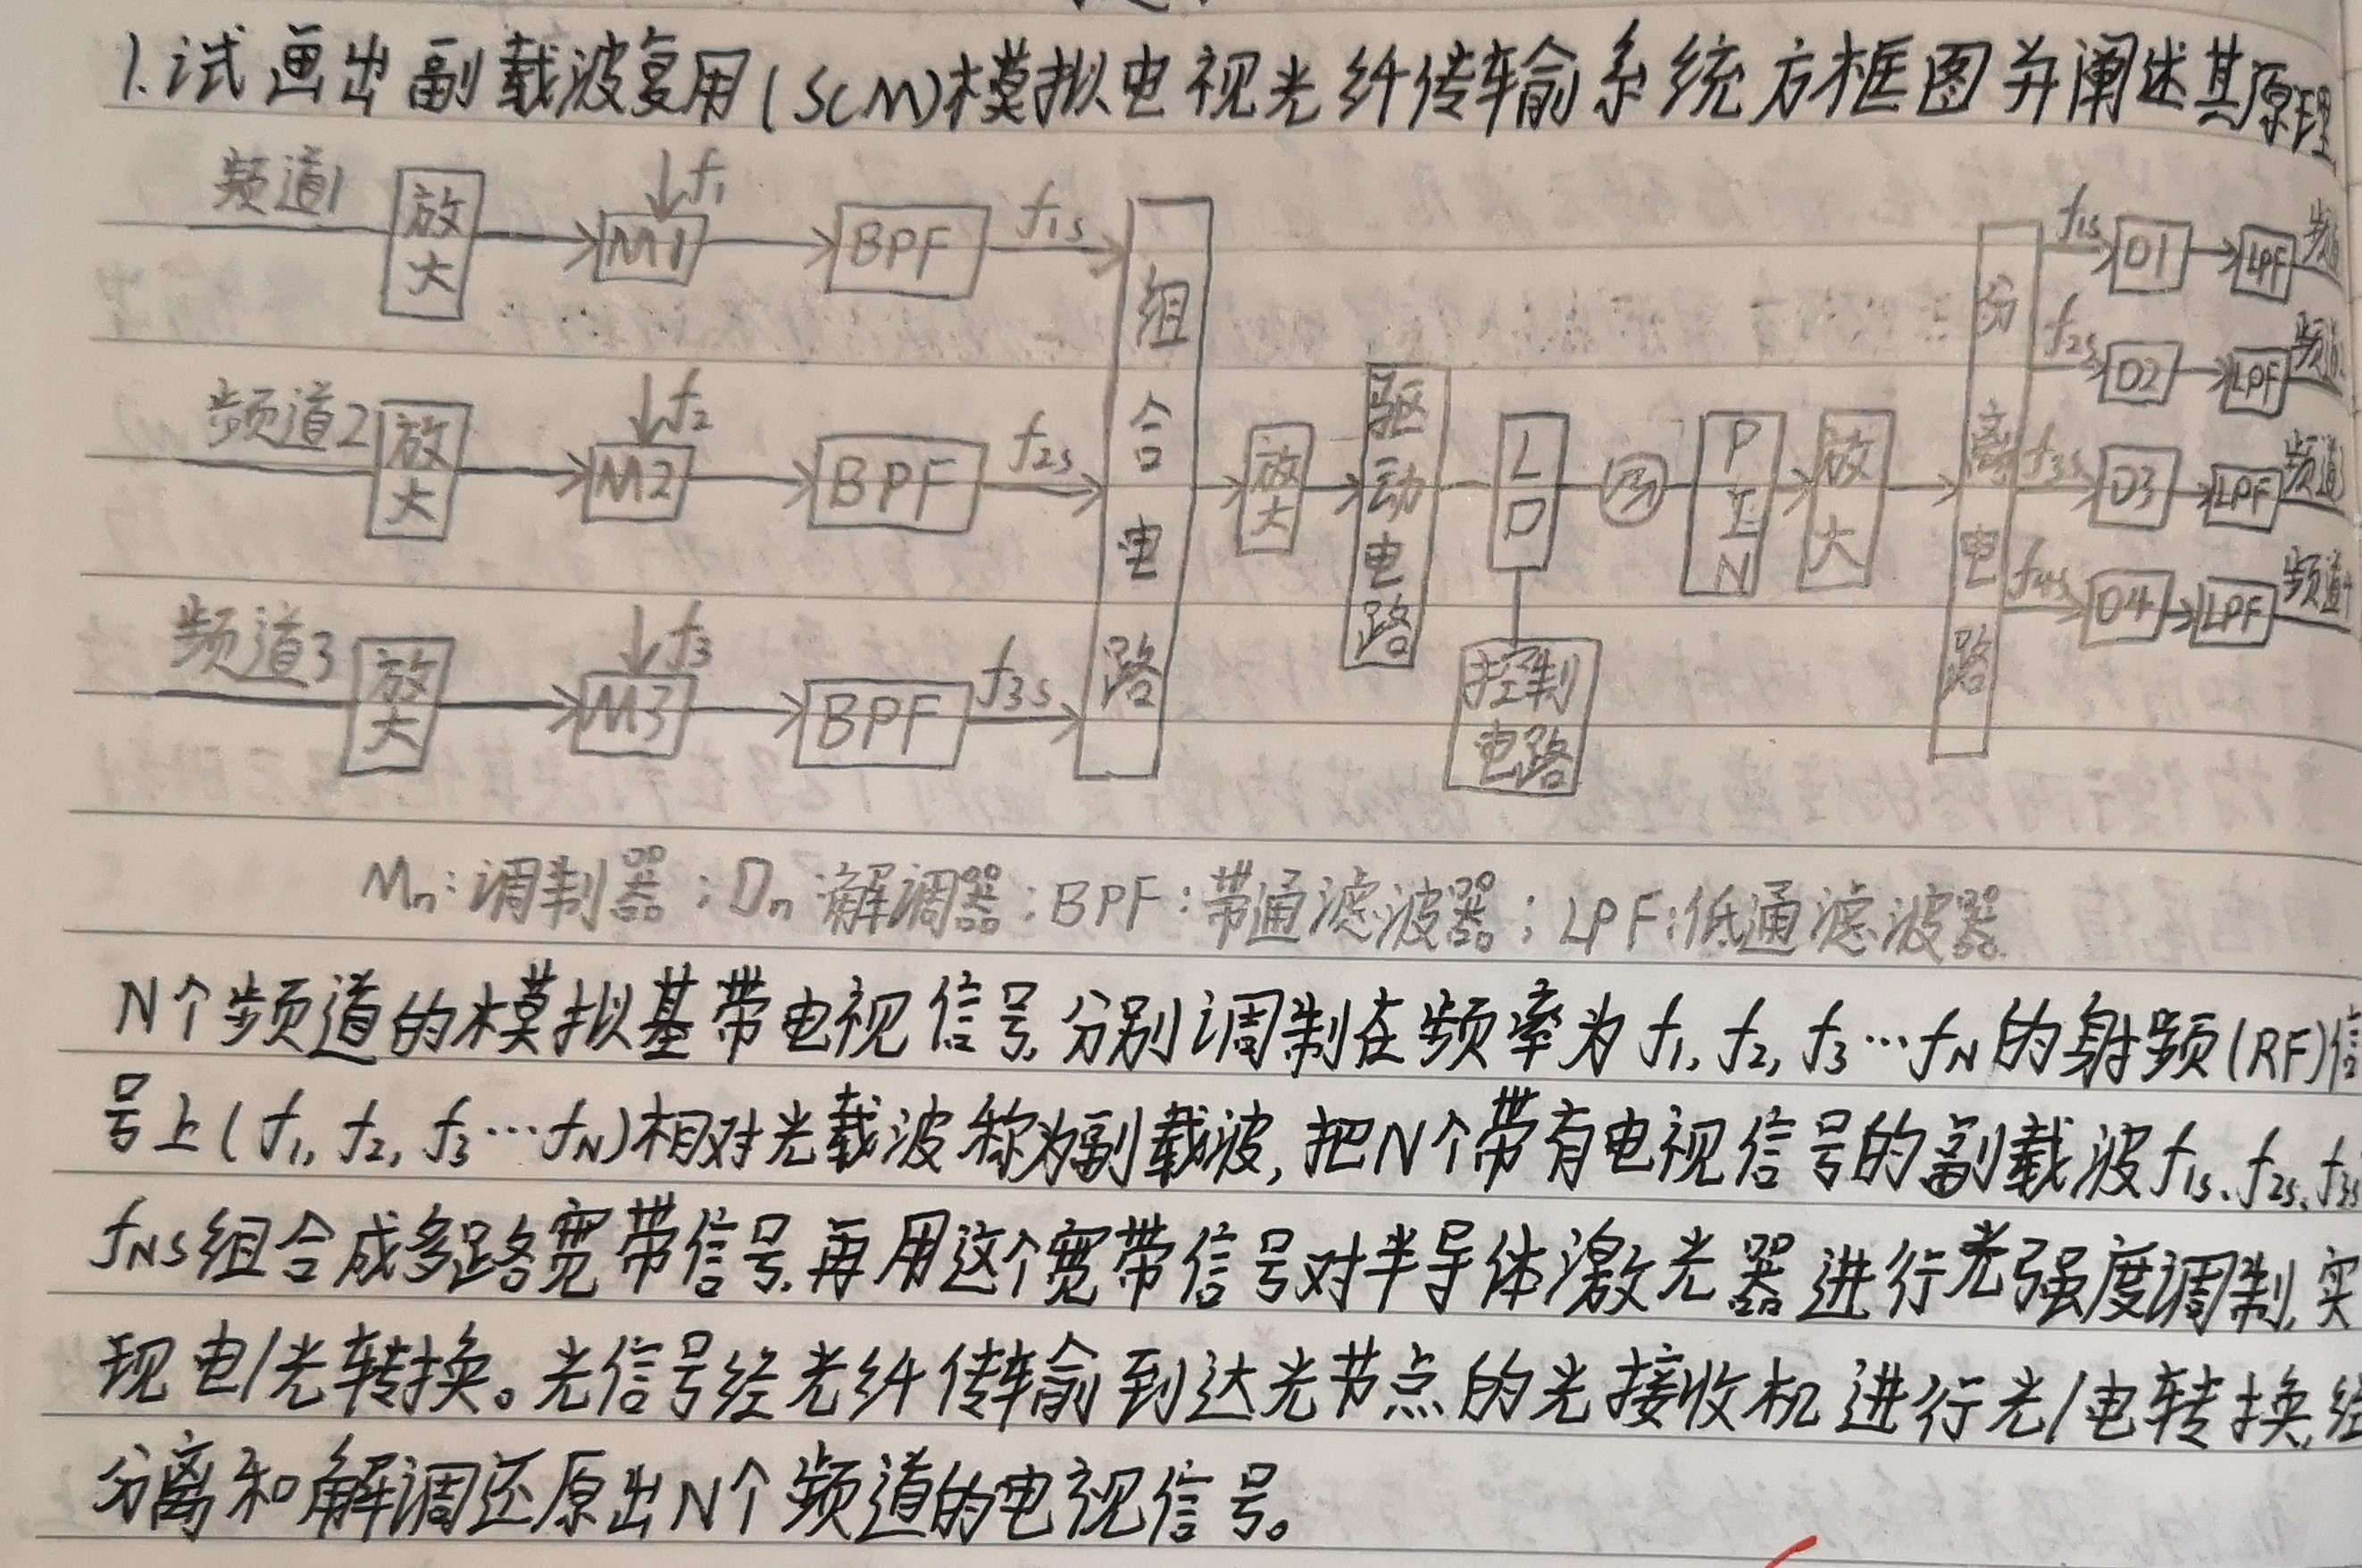 1.试画出副载波复用(SCM)模拟电视光纤传输系统方框图并阐述其原理
频道1 放大 f₁ M1 BPF f₁ₛ
频道2 放大 f₂ M2 BPF f₂ₛ
频道3 放大 f₃ M3 BPF f₃ₛ
组合电路
放大
驱动电路
LD
控制电路
PIN
放大
分离电路
f₁ₛ D1 LPF 频
f₂ₛ D2 LPF 频道
f₃ₛ D3 LPF 频道3
f₄ₛ D4 LPF 频道4
Mₙ:调制器;Dₙ解调器;BPF:带通滤波器;LPF:低通滤波器
N个频道的模拟基带电视信号,分别调制在频率为f₁,f₂,f₃…fN的射频(RF)信
号上(f₁,f₂,f₃…fN)相对光载波称为副载波,把N个带有电视信号的副载波f₁ₛ、f₂ₛ、f₃ₛ
fNS组合成多路宽带信号,再用这个宽带信号对半导体激光器进行光强度调制,实
现电/光转换。光信号经光纤传输到达光节点的光接收机进行光/电转换,经
分离和解调还原出N个频道的电视信号。